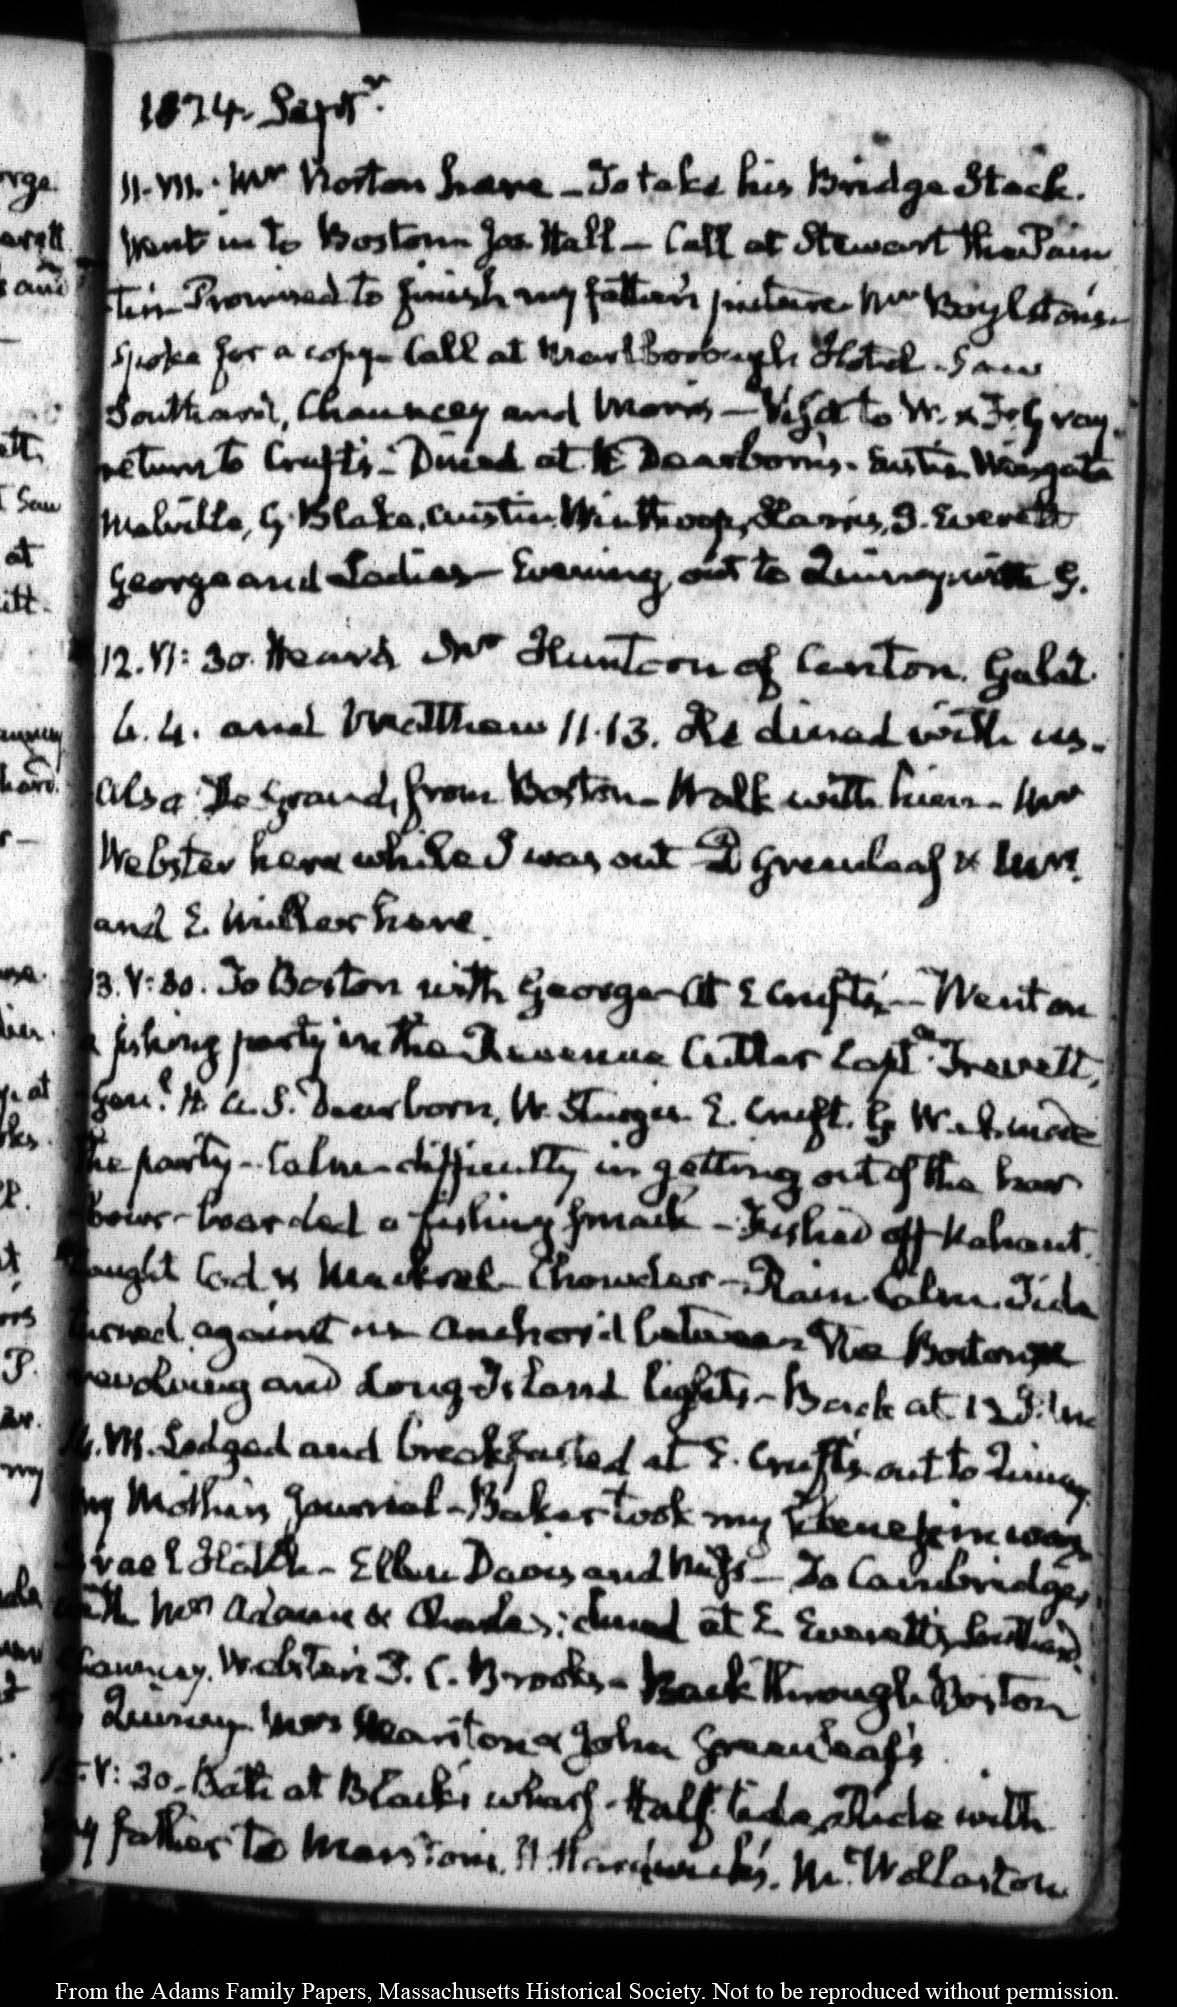 1824. Septr.
11. VI. Mr Norton here – To take his Bridge Stock.
Went in to Boston Jos. Hall – Call at Stewart the Pain
ter – Promised to finish my father's picture Mr Boylston's
spoke for a copy – Call at Marlborough Hotel – Saw
Southard, Chauncey and Morris – Visit to W. & F. Gray.
return to Cruft's – Dined at H Dearborn's – Eustis Wingate
Melville, G. Blake, Austin, Winthrop, Harris, E. Everett
George and Ladies – Evening out to Quincy with G.
12. VI: 30. Heard Mr Huntoon of Canton. Galat.
4. 4. and Matthew 11. 13. He dined with us.
also De Grand, from Boston – Walk with him – Mr
Webster here while I was out D Greenleaf & Mrs.
and E. Miller here.
13. V: 30. To Boston with George – At E Cruft's – Went on
a fishing party in the Revenue Cutter Captn. Trevett,
Genl. H. A. S. Dearborn, W. Sturgis E. Cruft. G W. A. made
the party – Calm – difficulty in getting out of the har
bour – boarded a fishing smack – Fished off Nahant.
Caught Cod & Mackrel – Chowder – Rain. Calm. Tide
turned against us anchor'd between the Boston
revolving and Long-Island lights – Back at 12
14. VI. Lodged and breakfasted at E. Cruft's out to Quincy
my Mother's Journal – Baker took my
Israel Hatch – Ellen Davis and Miss – To Cambridge,
with Mrs Adams & Charles; dined at E Everett's Southard.
Chauncey. Webster P. C. Brooks – Back through Boston
to Quincy Mrs Marston & John Greenleaf's
15. V: 30. Bath at Black's wharf – Half tide, Ride with
my father to Marston's. H. Hardwick's. Mt. Wollaston
From the Adams Family Papers, Massachusetts Historical Society. Not to be reproduced without permission.